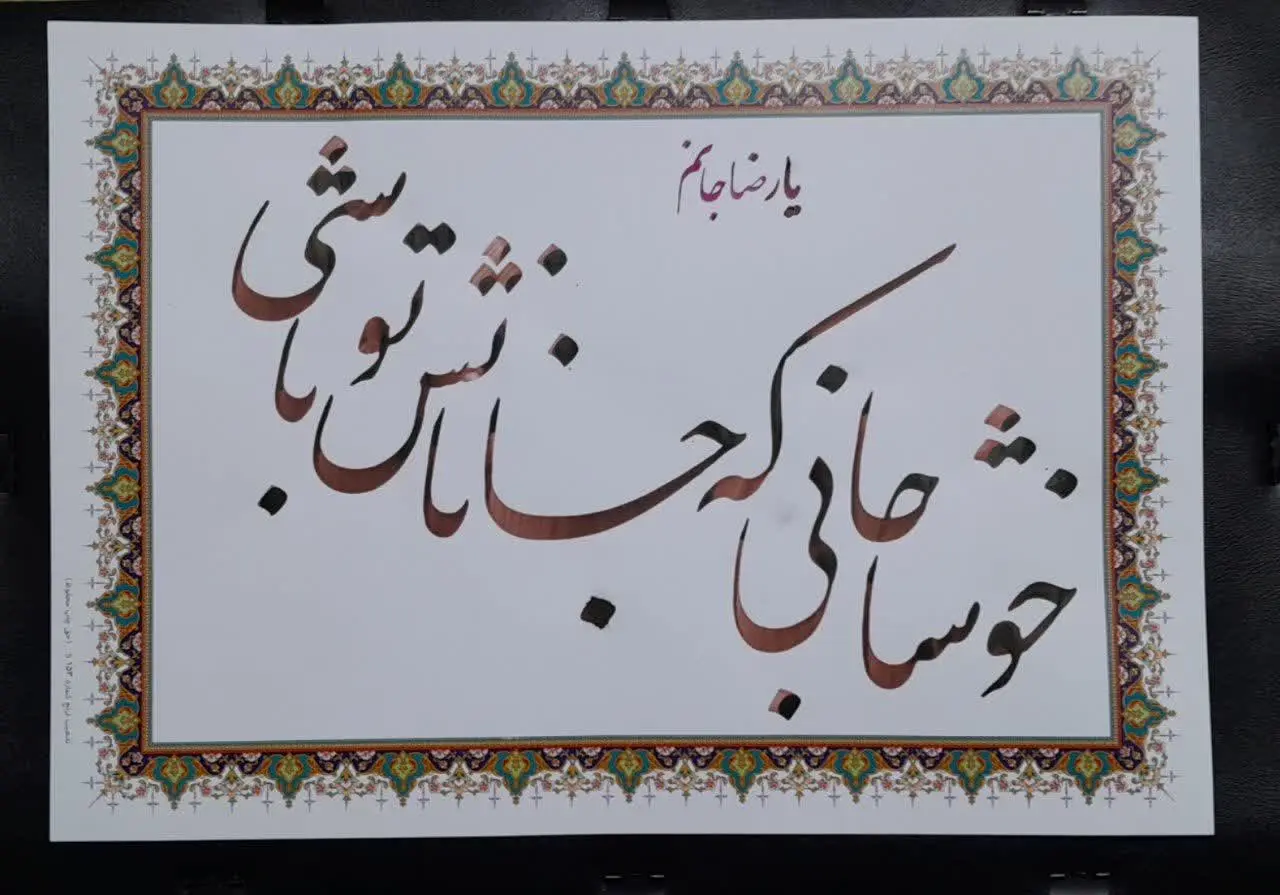 یا رضا جانم
خوشا جانی که جانانش تو باشی